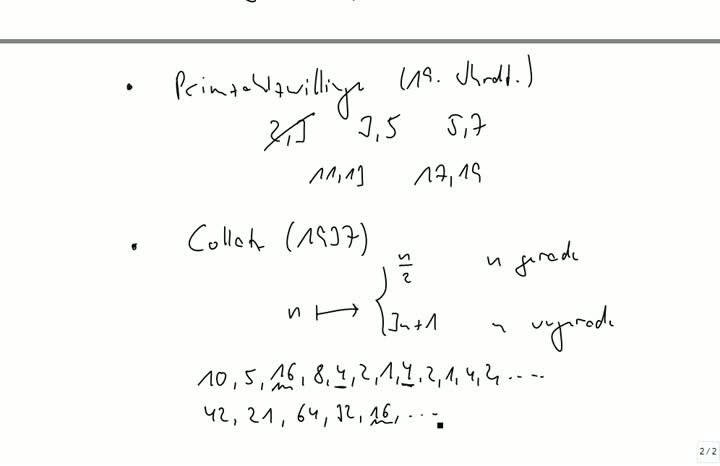 • Primzahlzwillinge (19. Jhrdt.)
2,3 3,5 5,7
11,13 17,19
• Collatz (1937)
n/2 n gerade
n ↦ {
3n+1 n ungerade
10, 5, 16, 8, 4, 2, 1, 4, 2, 1, 4, 2, ....
42, 21, 64, 32, 16, ...
2/2